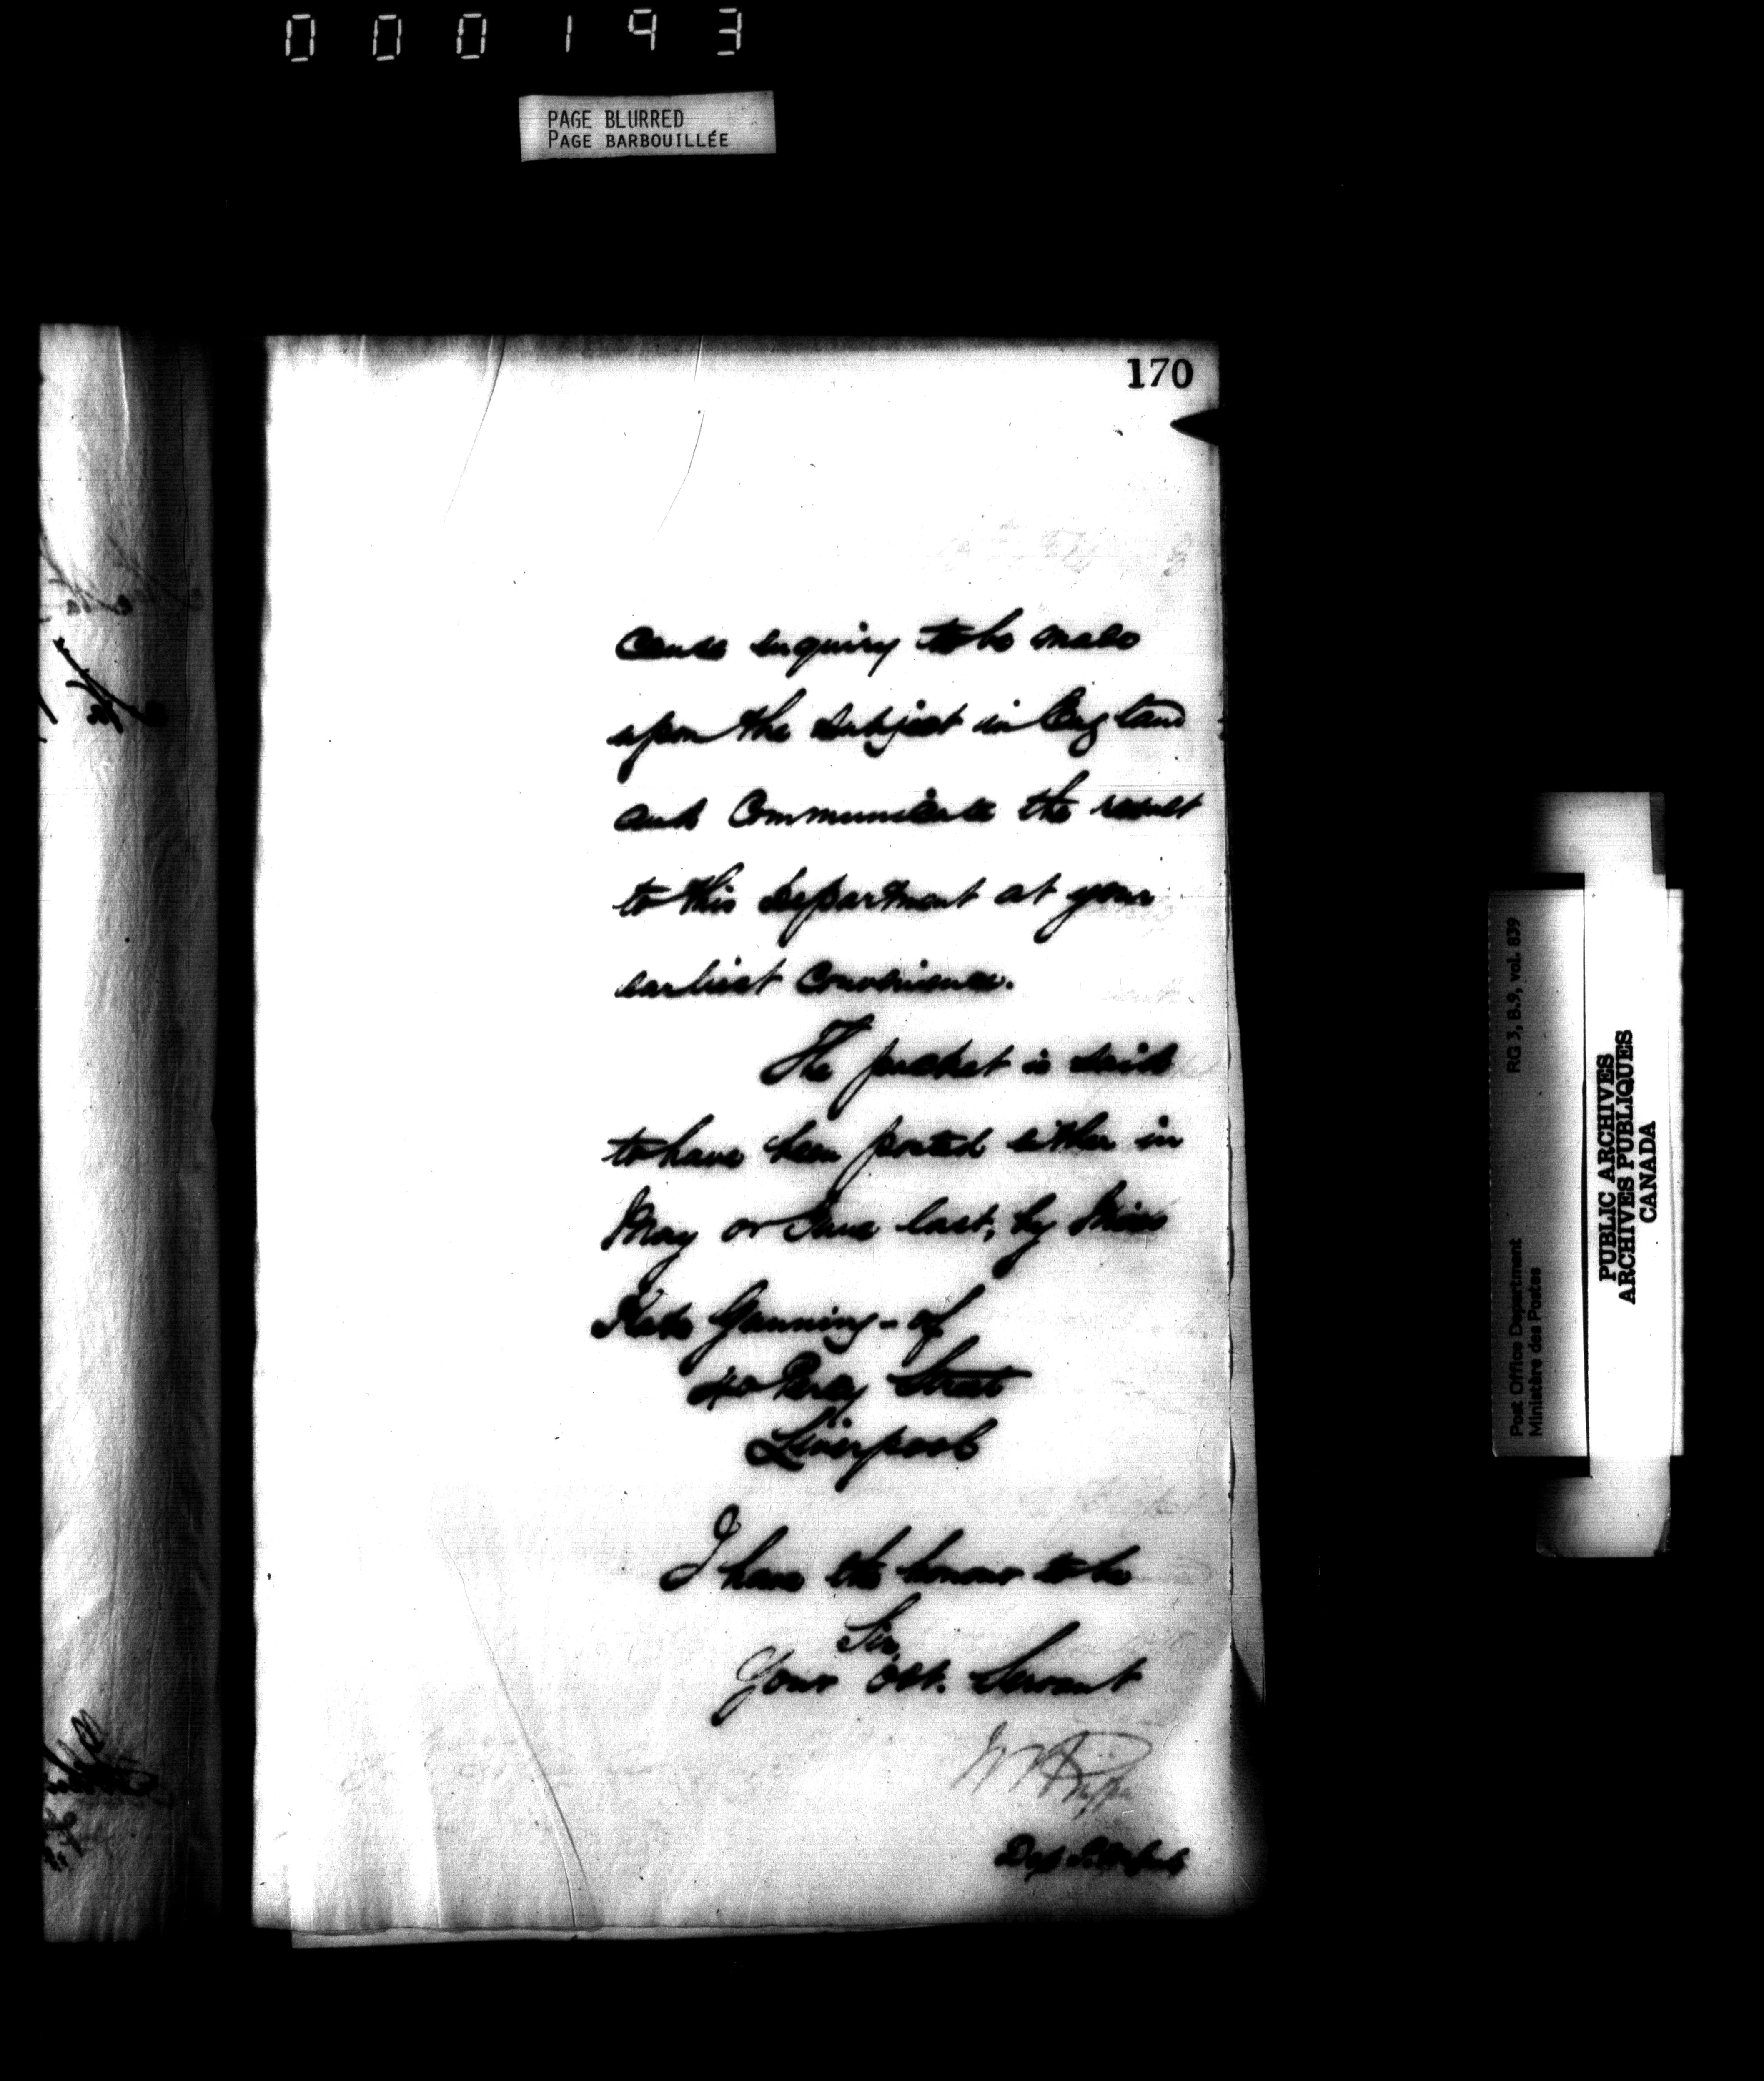 000193
PAGE BLURRED
PAGE BARBOUILLÉE
170
cause enquiry to be made
upon the subject in England
and Communicate the result
to this Department at your
earliest convenience.
The packet is said
to have been posted either in
May or June last, by Miss
Kate Gunning - of
40 Percy Street
Liverpool
I have the honour to be
Sir,
Your Obt. Servant
Dep
RG 3, B.9, vol. 839
Post Office Department
Ministère des Postes
PUBLIC ARCHIVES
ARCHIVES PUBLIQUES
CANADA